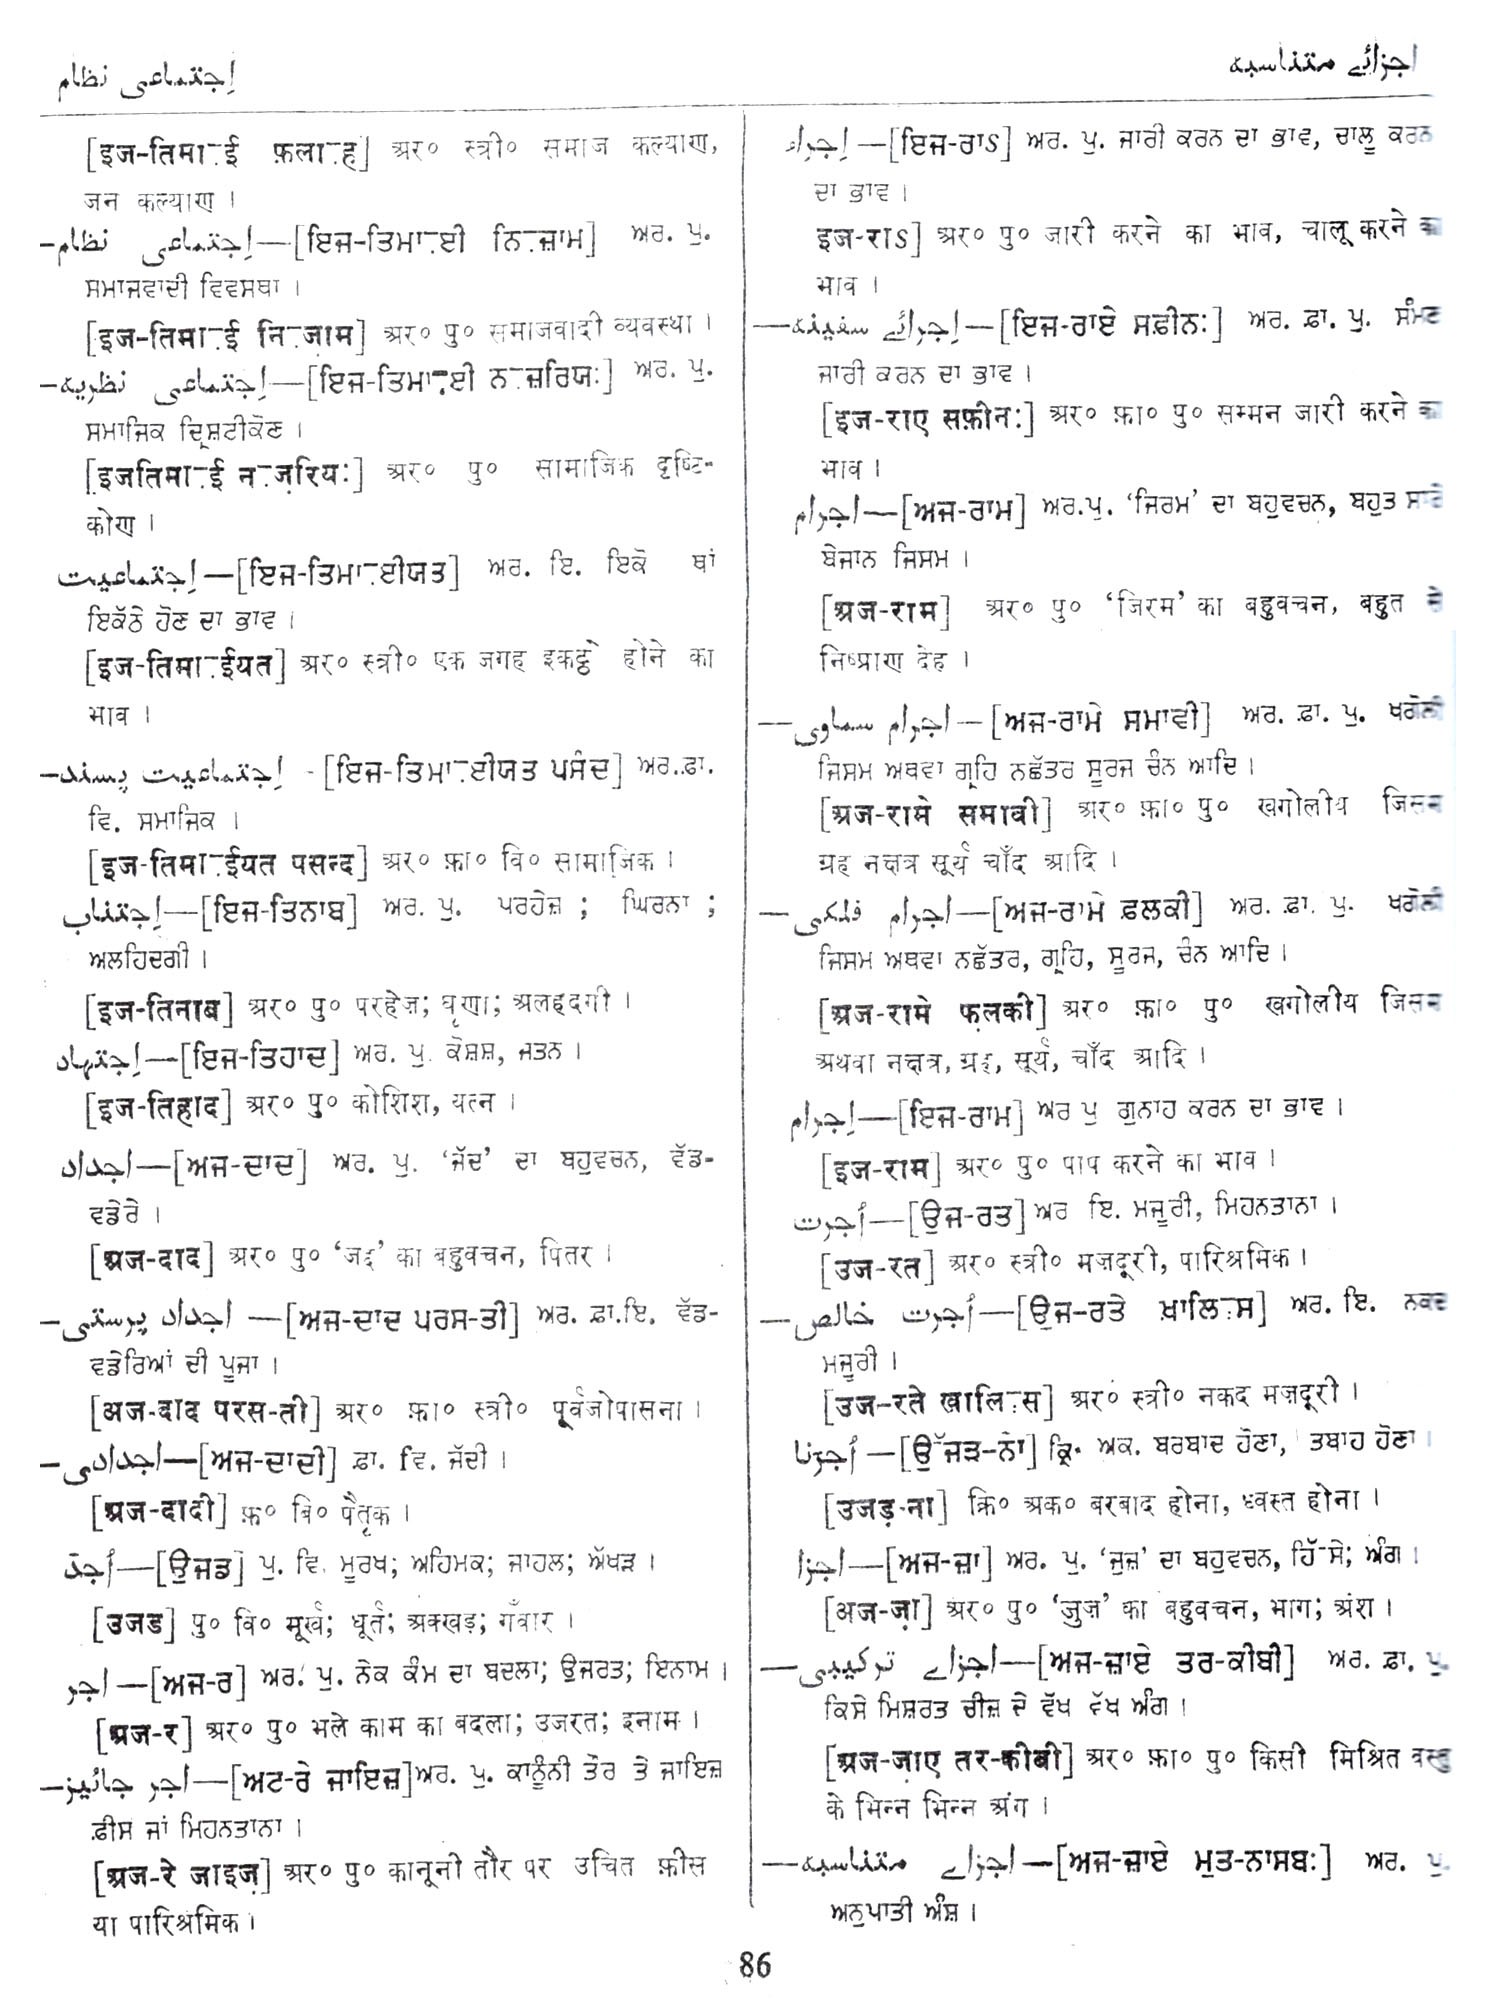 اِجتماعی نظام
اجزائے متناسبہ
[इज-तिमा-ई फ़ला-ह] अर० स्त्री० समाज कल्याण,
जन कल्याण ।
—اِجتماعی نظام—[ਇਜ-ਤਿਮਾ-ਈ ਨਿ-ਜ਼ਾਮ] ਅਰ. ਪੁ.
ਸਮਾਜਵਾਦੀ ਵਿਵਸਥਾ ।
[इज-तिमा-ई नि-जाम] अर० पु० समाजवादी व्यवस्था ।
—اِجتماعی نظریہ—[ਇਜ-ਤਿਮਾ-ਈ ਨ-ਜ਼ਰਿਯਃ] ਅਰ. ਪੁ.
ਸਮਾਜਿਕ ਦ੍ਰਿਸ਼ਟੀਕੋਣ ।
[इजतिमा-ई न-ज़रियः] अर० पु० सामाजिक दृष्टि-
कोण ।
اِجتماعیت—[ਇਜ-ਤਿਮਾ-ਈਯਤ] ਅਰ. ਇ. ਇਕੋ ਥਾਂ
ਇਕੱਠੇ ਹੋਣ ਦਾ ਭਾਵ ।
[इज-तिमा-ईयत] अर० स्त्री० एक जगह इकट्ठे होने का
भाव ।
—اِجتماعیت پسند -[ਇਜ-ਤਿਮਾ-ਈਯਤ ਪਸੰਦ] ਅਰ..ਫ਼ਾ.
ਵਿ. ਸਮਾਜਿਕ ।
[इज-तिमा-ईयत पसन्द] अर० फ़ा० वि० सामाजिक ।
اِجتناب—[ਇਜ-ਤਿਨਾਬ] ਅਰ. ਪੁ. ਪਰਹੇਜ਼ ; ਘਿਰਨਾ ;
ਅਲਹਿਦਗੀ ।
[इज-तिनाब] अर० पु० परहेज़; घृणा; अलहदगी ।
اِجتہاد—[ਇਜ-ਤਿਹਾਦ] ਅਰ. ਪੁ. ਕੋਸ਼ਸ਼, ਜਤਨ ।
[इज-तिहाद] अर० पु० कोशिश, यत्न ।
اجداد—[ਅਜ-ਦਾਦ] ਅਰ. ਪੁ. ‘ਜੱਦ’ ਦਾ ਬਹੁਵਚਨ, ਵੱਡ-
ਵਡੇਰੇ ।
[अज-दाद] अर० पु० ‘जद्द’ का बहुवचन, पितर ।
—اجداد پرستی —[ਅਜ-ਦਾਦ ਪਰਸ-ਤੀ] ਅਰ. ਫ਼ਾ.ਇ. ਵੱਡ-
ਵਡੇਰਿਆਂ ਦੀ ਪੂਜਾ ।
[अज-दाद परस-ती] अर० फ़ा० स्त्री० पूर्वजोपासना ।
—اجدادی—[ਅਜ-ਦਾਦੀ] ਫ਼ਾ. ਵਿ. ਜੱਦੀ ।
[अज-दादी] फ़० वि० पैतृक ।
اُجڈ—[ਉਜਡ] ਪੁ. ਵਿ. ਮੂਰਖ; ਅਹਿਮਕ; ਜਾਹਲ; ਅੱਖੜ ।
[उजड] पु० वि० मूर्ख; धूर्त; अक्खड़; गँवार ।
اجر—[ਅਜ-ਰ] ਅਰ. ਪੁ. ਨੇਕ ਕੰਮ ਦਾ ਬਦਲਾ; ਉਜਰਤ; ਇਨਾਮ ।
[अज-र] अर० पु० भले काम का बदला; उजरत; इनाम ।
—اجر جائیز—[ਅਟ-ਰੇ ਜਾਇਜ਼]ਅਰ. ਪੁ. ਕਾਨੂੰਨੀ ਤੌਰ ਤੇ ਜਾਇਜ਼
ਫ਼ੀਸ ਜਾਂ ਮਿਹਨਤਾਨਾ ।
[अज-रे जाइज़] अर० पु० कानूनी तौर पर उचित फ़ीस
या पारिश्रमिक ।
اِجراء—[ਇਜ-ਰਾS] ਅਰ. ਪੁ. ਜਾਰੀ ਕਰਨ ਦਾ ਭਾਵ, ਚਾਲੂ ਕਰਨ
ਦਾ ਭਾਵ ।
इज-राS] अर० पु० जारी करने का भाव, चालू करने का
भाव ।
—اِجرائے سفینہ—[ਇਜ-ਰਾਏ ਸਫ਼ੀਨਃ] ਅਰ. ਫ਼ਾ. ਪੁ. ਸੰਮਣ
ਜਾਰੀ ਕਰਨ ਦਾ ਭਾਵ ।
[इज-राए सफ़ीनः] अर० फ़ा० पु० सम्मन जारी करने का
भाव ।
اجرام—[ਅਜ-ਰਾਮ] ਅਰ.ਪੁ. ‘ਜਿਰਮ’ ਦਾ ਬਹੁਵਚਨ, ਬਹੁਤ ਸਾਰੇ
ਬੇਜਾਨ ਜਿਸਮ ।
[अज-राम] अर० पु० ‘जिरम’ का बहुवचन, बहुत से
निष्प्राण देह ।
—اجرام سماوی—[ਅਜ-ਰਾਮੇ ਸਮਾਵੀ] ਅਰ. ਫ਼ਾ. ਪੁ. ਖਗੋਲੀ
ਜਿਸਮ ਅਥਵਾ ਗ੍ਰਹਿ ਨਛੱਤਰ ਸੂਰਜ ਚੰਨ ਆਦਿ ।
[अज-रामे समावी] अर० फ़ा० पु० खगोलीय जिसम
ग्रह नक्षत्र सूर्य चाँद आदि ।
—اجرام فلکی—[ਅਜ-ਰਾਮੇ ਫ਼ਲਕੀ] ਅਰ. ਫ਼ਾ. ਪੁ. ਖਗੋਲੀ
ਜਿਸਮ ਅਥਵਾ ਨਛੱਤਰ, ਗ੍ਰਹਿ, ਸੂਰਜ, ਚੰਨ ਆਦਿ ।
[अज-रामे फ़लकी] अर० फ़ा० पु० खगोलीय जिसम
अथवा नक्षत्र, ग्रह, सूर्य, चाँद आदि ।
اِجرام—[ਇਜ-ਰਾਮ] ਅਰ ਪੁ ਗੁਨਾਹ ਕਰਨ ਦਾ ਭਾਵ ।
[इज-राम] अर० पु० पाप करने का भाव ।
اُجرت—[ਉਜ-ਰਤ] ਅਰ ਇ. ਮਜੂਰੀ, ਮਿਹਨਤਾਨਾ ।
[उज-रत] अर० स्त्री० मज़दूरी, पारिश्रमिक ।
—اُجرت خالص—[ਉਜ-ਰਤੇ ਖ਼ਾਲਿ-ਸ] ਅਰ. ਇ. ਨਕਦ
ਮਜੂਰੀ ।
[उज-रते खालि-स] अर० स्त्री० नकद मज़दूरी ।
اُجڑنا—[ਉੱਜੜ-ਨਾ] ਕ੍ਰਿ. ਅਕ. ਬਰਬਾਦ ਹੋਣਾ, ਤਬਾਹ ਹੋਣਾ ।
[उजड़-ना] क्रि० अक० बरबाद होना, ध्वस्त होना ।
اجزا—[ਅਜ-ਜ਼ਾ] ਅਰ. ਪੁ. ‘ਜੁਜ਼’ ਦਾ ਬਹੁਵਚਨ, ਹਿੱਸੇ; ਅੰਗ ।
[अज-ज़ा] अर० पु० ‘जुज़’ का बहुवचन, भाग; अंश ।
—اجزاے ترکیبی—[ਅਜ-ਜ਼ਾਏ ਤਰ-ਕੀਬੀ] ਅਰ. ਫ਼ਾ. ਪੁ.
ਕਿਸੇ ਮਿਸ਼ਰਤ ਚੀਜ਼ ਦੇ ਵੱਖ ਵੱਖ ਅੰਗ ।
[अज-जाए तर-कीबी] अर० फ़ा० पु० किसी मिश्रित वस्तु
के भिन्न भिन्न अंग ।
—اجزاے متناسبہ—[ਅਜ-ਜ਼ਾਏ ਮੁਤ-ਨਾਸਬਃ] ਅਰ. ਪੁ.
ਅਨੁਪਾਤੀ ਅੰਸ਼ ।
86